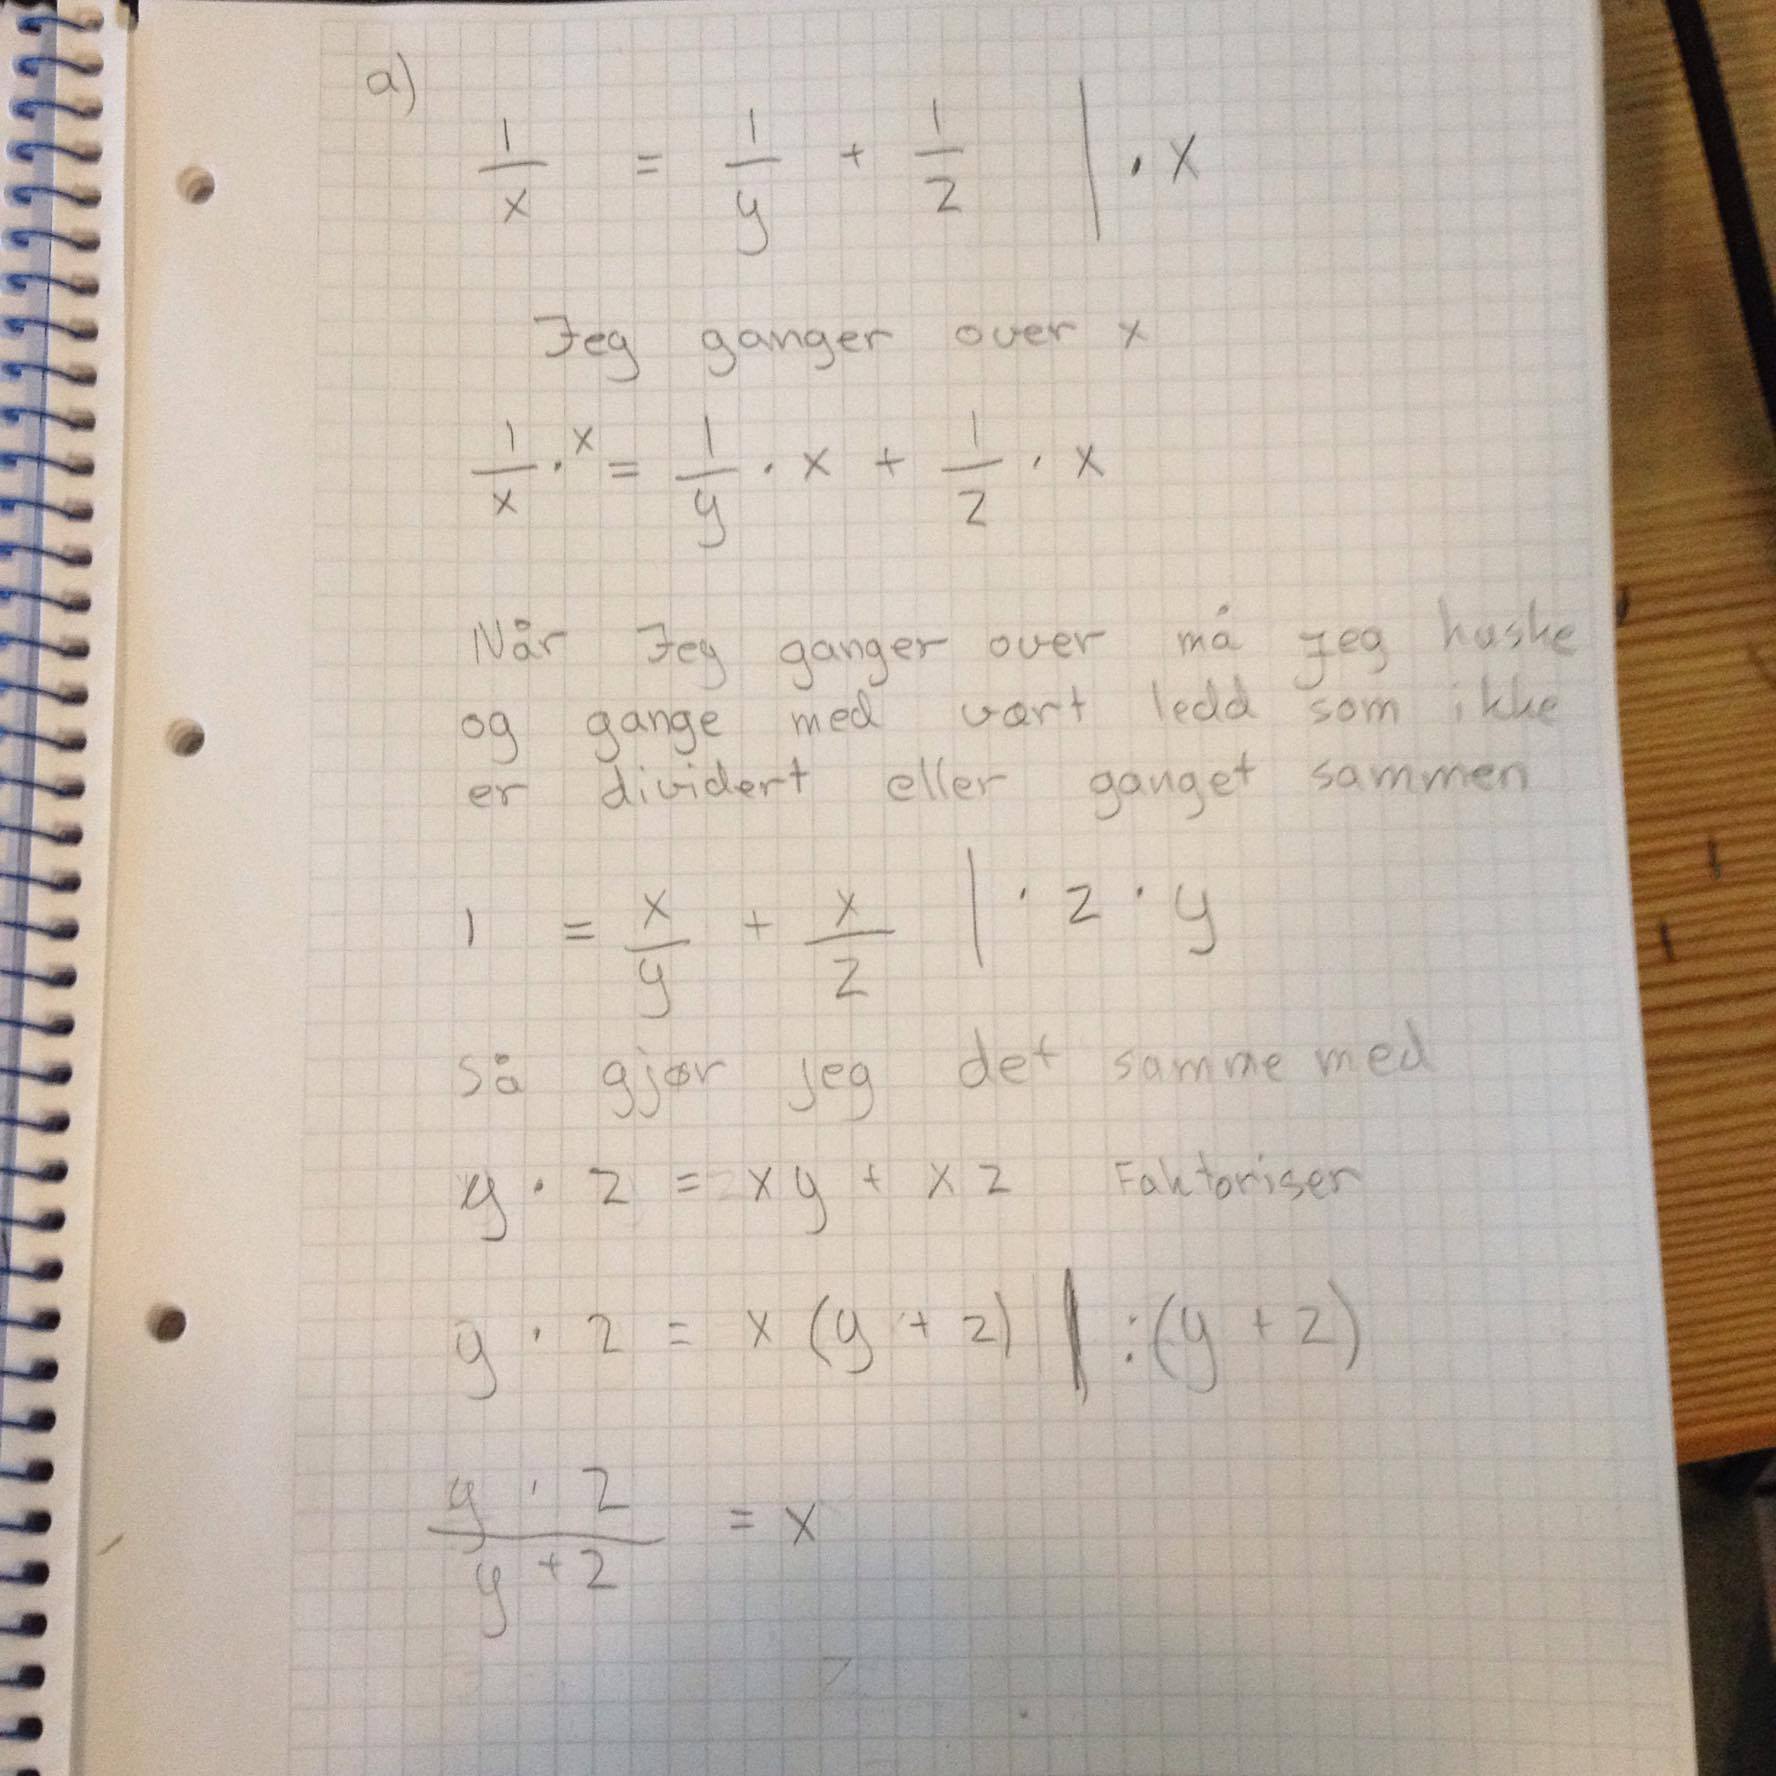 a)
1/x = 1/y + 1/z | · x
Jeg ganger over x
1/x · x = 1/y · x + 1/z · x
Når Jeg ganger over må jeg huske
og gange med vært ledd som ikke
er dividert eller ganget sammen
1 = x/y + x/z | · z · y
Så gjør jeg det samme med
y · z = xy + xz Faktoriser
y · z = x (y + z) | : (y + z)
y · z / y + z = x